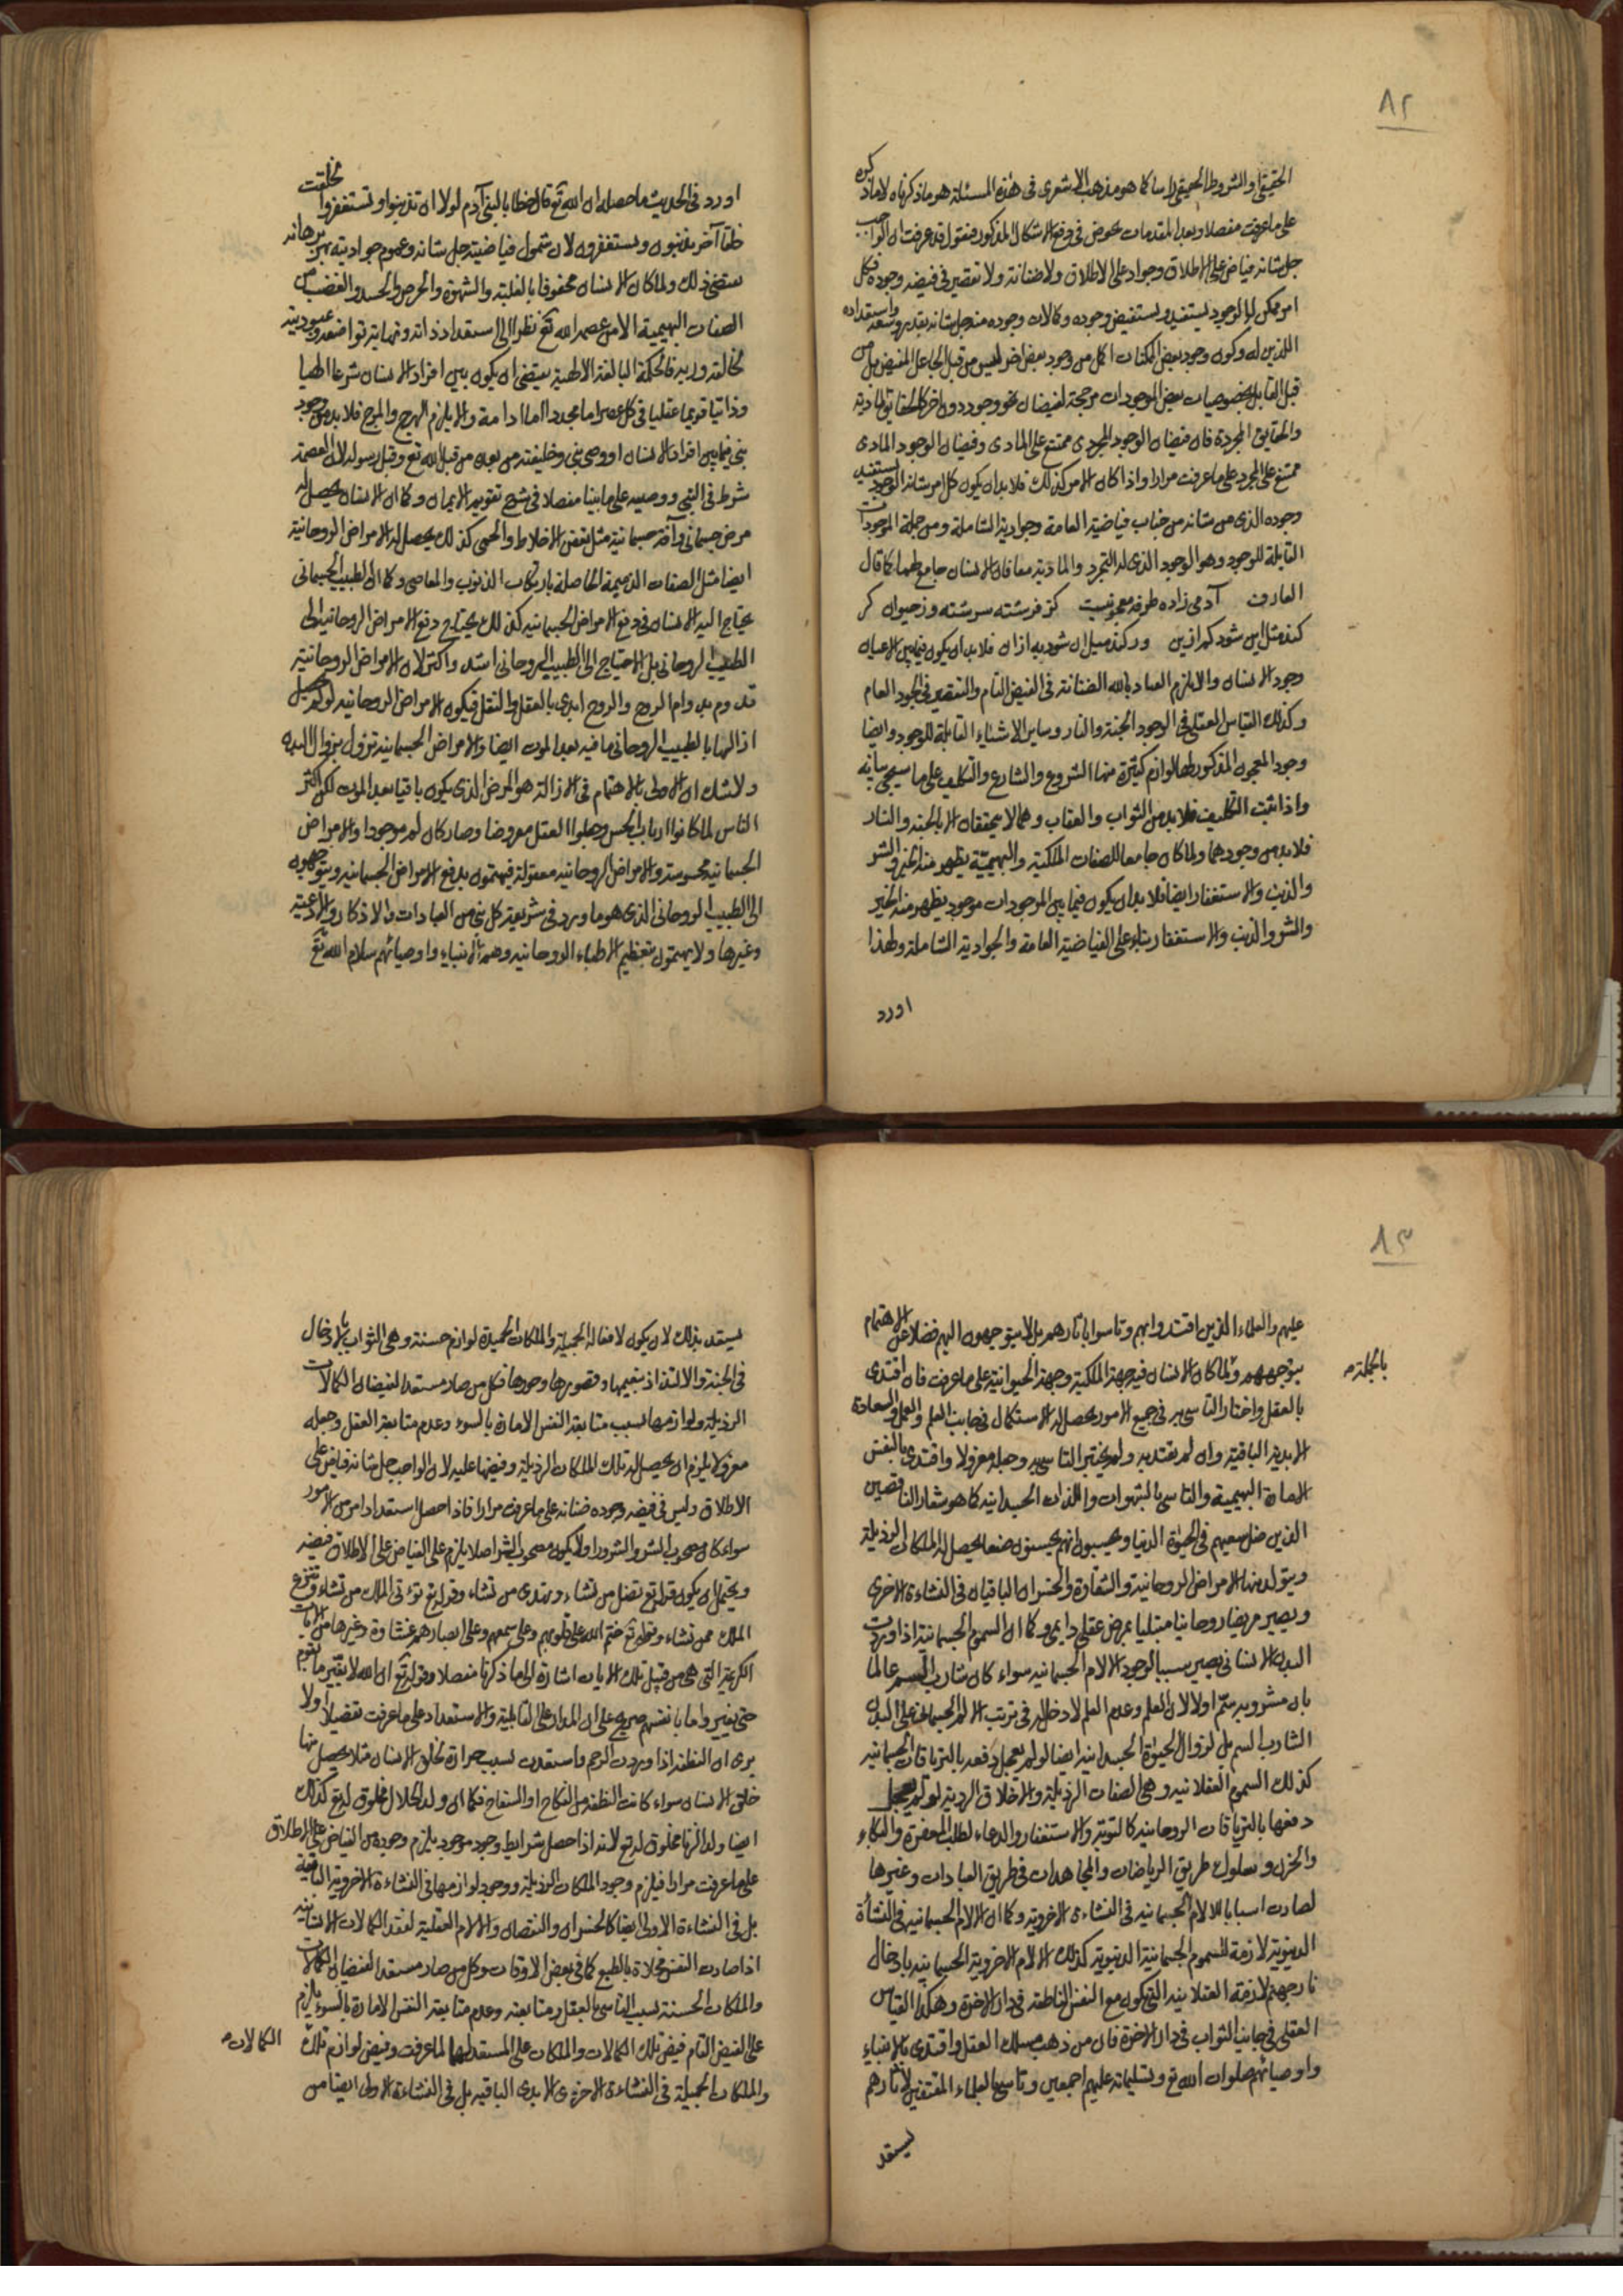 ٨٢
الحقيقي والشروط الحقيقي راسا كما هو مذهب الاشعري في هذه المسئلة هو ما ذكرناه لا ما ذكره
على ما عرفت مفصلا وبعد المقدمات نخوض في دفع الاشكال المذكور فنقول قد عرفت ان الواجب
جل شانه فياض على الاطلاق وجواد على الاطلاق ولا ضنانة ولا تقصير في فيضه وجوده فكل
امر ممكن له الوجود يستفيد ويستفيض وجوده وكمالات وجوده منه جل شانه بقدر وسعه واستعداده
اللذين له وكون وجود بعض الممكنات اكمل من وجود بعض اخر ليس من قبل الجاعل المفيض بل من
قبل القابل خصوصيات بعض الموجودات مرجحة لفيضان نحو وجود دون اخر كالحقايق المادية
والحقايق المجردة فان فيضان الوجود المجردي ممتنع على المادي وفيضان الوجود المادي
ممتنع على المجرد على ما عرفت مرارا واذا كان الامر كذلك فلابد ان يكون كل امر شانه الوجود يستفيد
وجوده الذي من شانه من جناب فياضيته العامة وجواديته الشاملة ومن جملة الموجودات
القابلة للوجود وهو الوجود الذي له التجرد والمادية معا فان الانسان جامع لهما كما قال
العارف آدمي زاده طرفه معجونيست كز فرشته سرشته وز حيوان كر
كند ميل اين شود كم ازين ور كند ميل ان شود به ازان فلابد ان يكون فيما بين الاعيان
وجود الانسان والا يلزم العياذ بالله الضنانة في الفيض التام والتقصير في الجود العام
وكذلك القياس العقلي في الوجود الجنة والنار وساير الاشياء القابلة للوجود وايضا
وجود المعجون المذكور لها لوازم كثيرة منها الشروع والشارع والتكليف على ما سيجي بيانه
واذا ثبت التكليف فلابد من الثواب والعقاب وهما لا يتحققان الا بالجنة والنار
فلابد من وجودهما ولما كان جامعا للصفات الملكية والبهيمية يظهر منه الخير والشر
والذنب والاستغفار ايضا فلابد ان يكون فيما بين الموجودات موجود يظهر منه الخير
والشر والذنب والاستغفار بناء على الفياضية العامة والجوادية الشاملة ولهذا
اورد
اورد في الحديث ما حصله ان الله تع قال خطابا لبني آدم لولا ان تذنبوا وتستغفروا لخلقت
خلقا آخر يذنبون ويستغفرون لان شمول فياضيته جل شانه وعموم جواديته بهر برهانه
يقتضي ذلك ولما كان الانسان محفوفا بالغلبة والشهوة والحرص والحسد والغضب من
الصفات البهيمية الا من عصمه الله تع نظرا الى استعداد ذاته ونهاية تواضعه وعبوديته
لخالقه وربه فالحكمة البالغة الالهية يقتضي ان يكون بين افراد الانسان شرعا الهيا
وذاتيا قويما عقليا في كل عصر اما مجددا اما ادامة والا يلزم الهرج والمرج فلابد من وجود
نبي فيما بين افراد الانسان او وصي نبي وخليفته من بعده من قبل الله تع وقبل رسوله لان العصمة
شرط في النبي ووصيه على ما بينا مفصلا في شرح تقويم الايمان وكما ان الانسان يحصل له
مرض جسماني وآفة جسمانية مثل تعفن الاخلاط والحمى كذلك يحصل له الامراض الروحانية
ايضا مثل الصفات الذميمة الحاصلة بارتكاب الذنوب والمعاصي وكما ان الطبيب الجسماني
يحتاج اليه الانسان في دفع الامراض الجسمانية كذلك يحتاج دفع الامراض الروحانية الى
الطبيب الروحاني بل الاحتياج الى الطبيب الروحاني اشد واكثر لان الامراض الروحانية
تدوم بدوام الروح والروح ابدي بالعقل والنقل فيكون الامراض الروحانية لو لم يحصل
ازالتها بالطبيب الروحاني باقية بعد الموت ايضا والامراض الجسمانية تزول بزوال البدن
ولا شك ان الاولى بالاهتمام في الازالة هو المرض الذي يكون باقيا بعد الموت لكن اكثر
الناس لما كانوا ارباب الحس وجعلوا العقل معروضا وصار كان لم موجودا والامراض
الجسمانية محسوسة والامراض الروحانية معقولة فيهتمون بدفع الامراض الجسمانية ويتوجهون
الى الطبيب الروحاني الذي هو ما ورد في شريعة كل نبي من العبادات والاذكار والادعية
وغيرها ولا يهتمون بتعظيم الاطباء الروحانية وهم الانبياء واوصيائهم سلام الله تع
٨٣
عليهم والعلماء الذين اقتدوا بهم وتاسوا باثارهم بل لا يتوجهون اليهم فضلا عن الاهتمام
بتوجههم ولما كان الانسان فيه جهة الملكية وجهة الحيوانية على ما عرفت فان اقتدى
بالجملة
بالعقل واختار التاسي به في جميع الامور يحصل له الاستكمال في جانب العلم والعمل والسعادة
الابدية الباقية وان لم يقتد به ولم يختر التاسي به وجعله معزولا واقتدى بالنفس
الامارة البهيمية والتاسي بالشهوات واللذات الجسدانية كما هو شعار الناقصين
الذين ضل سعيهم في الحيوة الدنيا ويحسبون انهم يحسنون صنعا يحصل له الملكات الرذيلة
ويتولد منها الامراض الروحانية والشقاوة والخسران الباقيان في النشاءة الاخرى
ويصير مريضا روحانيا مبتليا بمرض عقلي دايمي وكما ان السموم الجسمانية اذا وردت
البدن الانساني يصير سببا لوجود الالام الجسمانية سواء كان شارب السم عالما
بان مشروبه سم اولا لان العلم وعدم العلم لا دخل له في ترتب الالم الجسماني على البدن
الشارب السم بل لزوال الحيوة الجسدانية ايضا لو لم يعجل دفعه بالترياقات الجسمانية
كذلك السموم العقلانية وهي الصفات الرذيلة والاخلاق الردية لو لم يعجل
دفعها بالترياقات الروحانية كالتوبة والاستغفار والدعاء لطلب المغفرة والبكاء
والحزن وسلوك طريق الرياضات والمجاهدات في طريق العبادات وغيرها
لصارت اسبابا للالام الجسمانية في النشاءة الاخروية وكما ان الالام الجسمانية في النشأة
الدنيوية لازمة للسموم الجسمانية الدنيوية كذلك الالام الاخروية الجسمانية بادخال
نار جهنم لازمة العقلانية التي يكون مع النفس الناطقة في دار الاخرة وهكذا القياس
العقلي في جانب الثواب في دار الاخرة فان من ذهب مسلك العقل واقتدى بالانبياء
واوصيائهم صلوات الله تع وتسليماته عليهم اجمعين وتاسى بالعلماء المقتفين لاثارهم
ليستعد
ليستعد بذلك لان يكون لافعاله الجميلة والملكات الحميدة لوازم حسنة وهي الثواب بالادخال
في الجنة والالتذاذ بنعيمها وقصورها وحورها فكل من صار مستعدا لفيضان الكمالات
الرذيلة ولوازمها بسبب متابعة النفس الامارة بالسوء وعدم متابعة العقل وجعله
معزولا يلزم ان يحصل له تلك الملكات الرذيلة وفيضها عليه لان الواجب جل شانه فياض على
الاطلاق وليس في فيضه وجوده ضنانة على ما عرفت مرارا فاذا حصل استعداد امر من الامور
سواء كان مصحوب الشر والشرور اولا يكون مصحوب الشر اصلا يلزم على الفياض على الاطلاق فيضه
ويحتمل ان يكون قوله تع تضل من تشاء وتهدي من تشاء وقوله تع تؤتي الملك من تشاء وتنزع
الملك ممن تشاء وقوله تع ختم الله على قلوبهم وعلى سمعهم وعلى ابصارهم غشاوة وغيرها من الايات
الكريمة التي هي من قبيل تلك الايات اشارة الى ما ذكرنا مفصلا وقوله تع ان الله لا يغير ما بقوم
حتى يغيروا ما بانفسهم صريح على ان المدار على القابلية والاستعداد على ما عرفت تفصيلا اولا
يرى ان النطفة اذا وردت الرحم واستعدت بسبب حرارة تخلق الانسان مثلا يحصل منها
خلق الانسان سواء كانت النطفة من النكاح او السفاح فكما ان ولد الحلال مخلوق له تع كذلك
ايضا ولد الزنا مخلوق له تع لانه اذا حصل شرايط وجود موجود يلزم وجوده من الفياض على الاطلاق
على ما عرفت مرارا فيلزم وجود الملكات الرذيلة ووجود لوازمها في النشاءة الاخروية الباقية
بل في النشاءة الاولى ايضا كالخسران والنقصان والالام العقلية لفقد الكمالات الانسانية
اذا صارت النفس مخلاة بالطبع كما في بعض الاوقات وكل من صار مستعدا لفيضان الكمالات
والملكات الحسنة بسبب التاسي بالعقل ومتابعته وعدم متابعة النفس الامارة بالسوء يلزم
على الفيض التام فيض تلك الكمالات والملكات على المستعد لها لما عرفت وفيض لوازم تلك
الكمالات
والملكات الجميلة في النشاءة الاخرى الابدي الباقية بل في النشاءة الاولى ايضا من